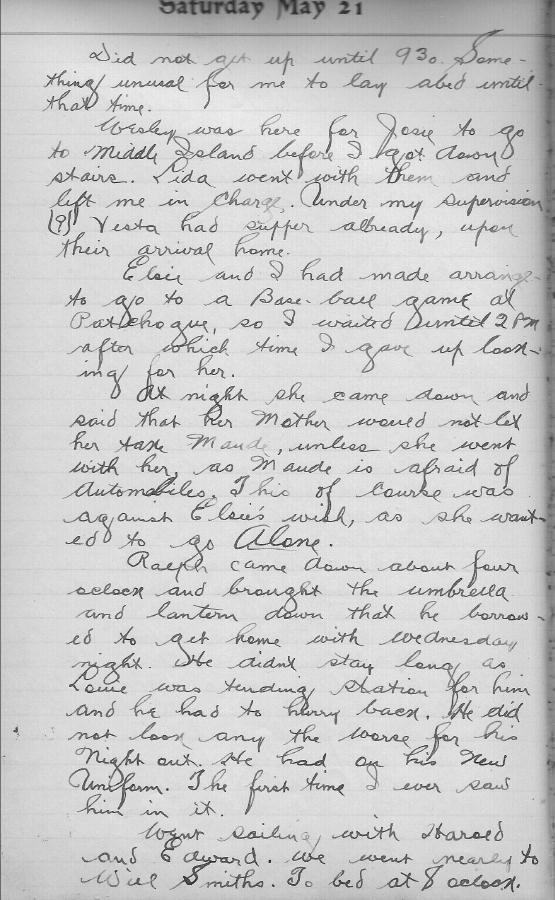 Saturday May 21
Did not get up until 930. Some-
thing unusual for me to lay abed until
that time.
Wesley was here for Josie to go
to Middle Island before I got down
stairs. Lida went with them and
left me in Charge. Under my supervision
(?) Vesta had supper already, upon
their arrival home.
Elsie and I had made arrange-
to go to a Base-ball game at
Patchogue, so I waited until 2 PM
after which time I gave up look-
ing for her.
At night she came down and
said that her Mother would not let
her take Maude, unless she went
with her, as Maude is afraid of
Automobiles. This of course was
against Elsie's wish, as she want-
ed to go Alone.
Ralph came down about four
oclock and brought the umbrella
and lantern down that he borrow-
ed to get home with Wednesday
night. He didnt stay long as
Louie was tending station for him
and he had to hurry back. He did
not look any the worse for his
Night out. He had on his New
Uniform. The first time I ever saw
him in it.
Went sailing with Harold
and Edward. We went nearly to
Will Smiths. To bed at 8 oclock.